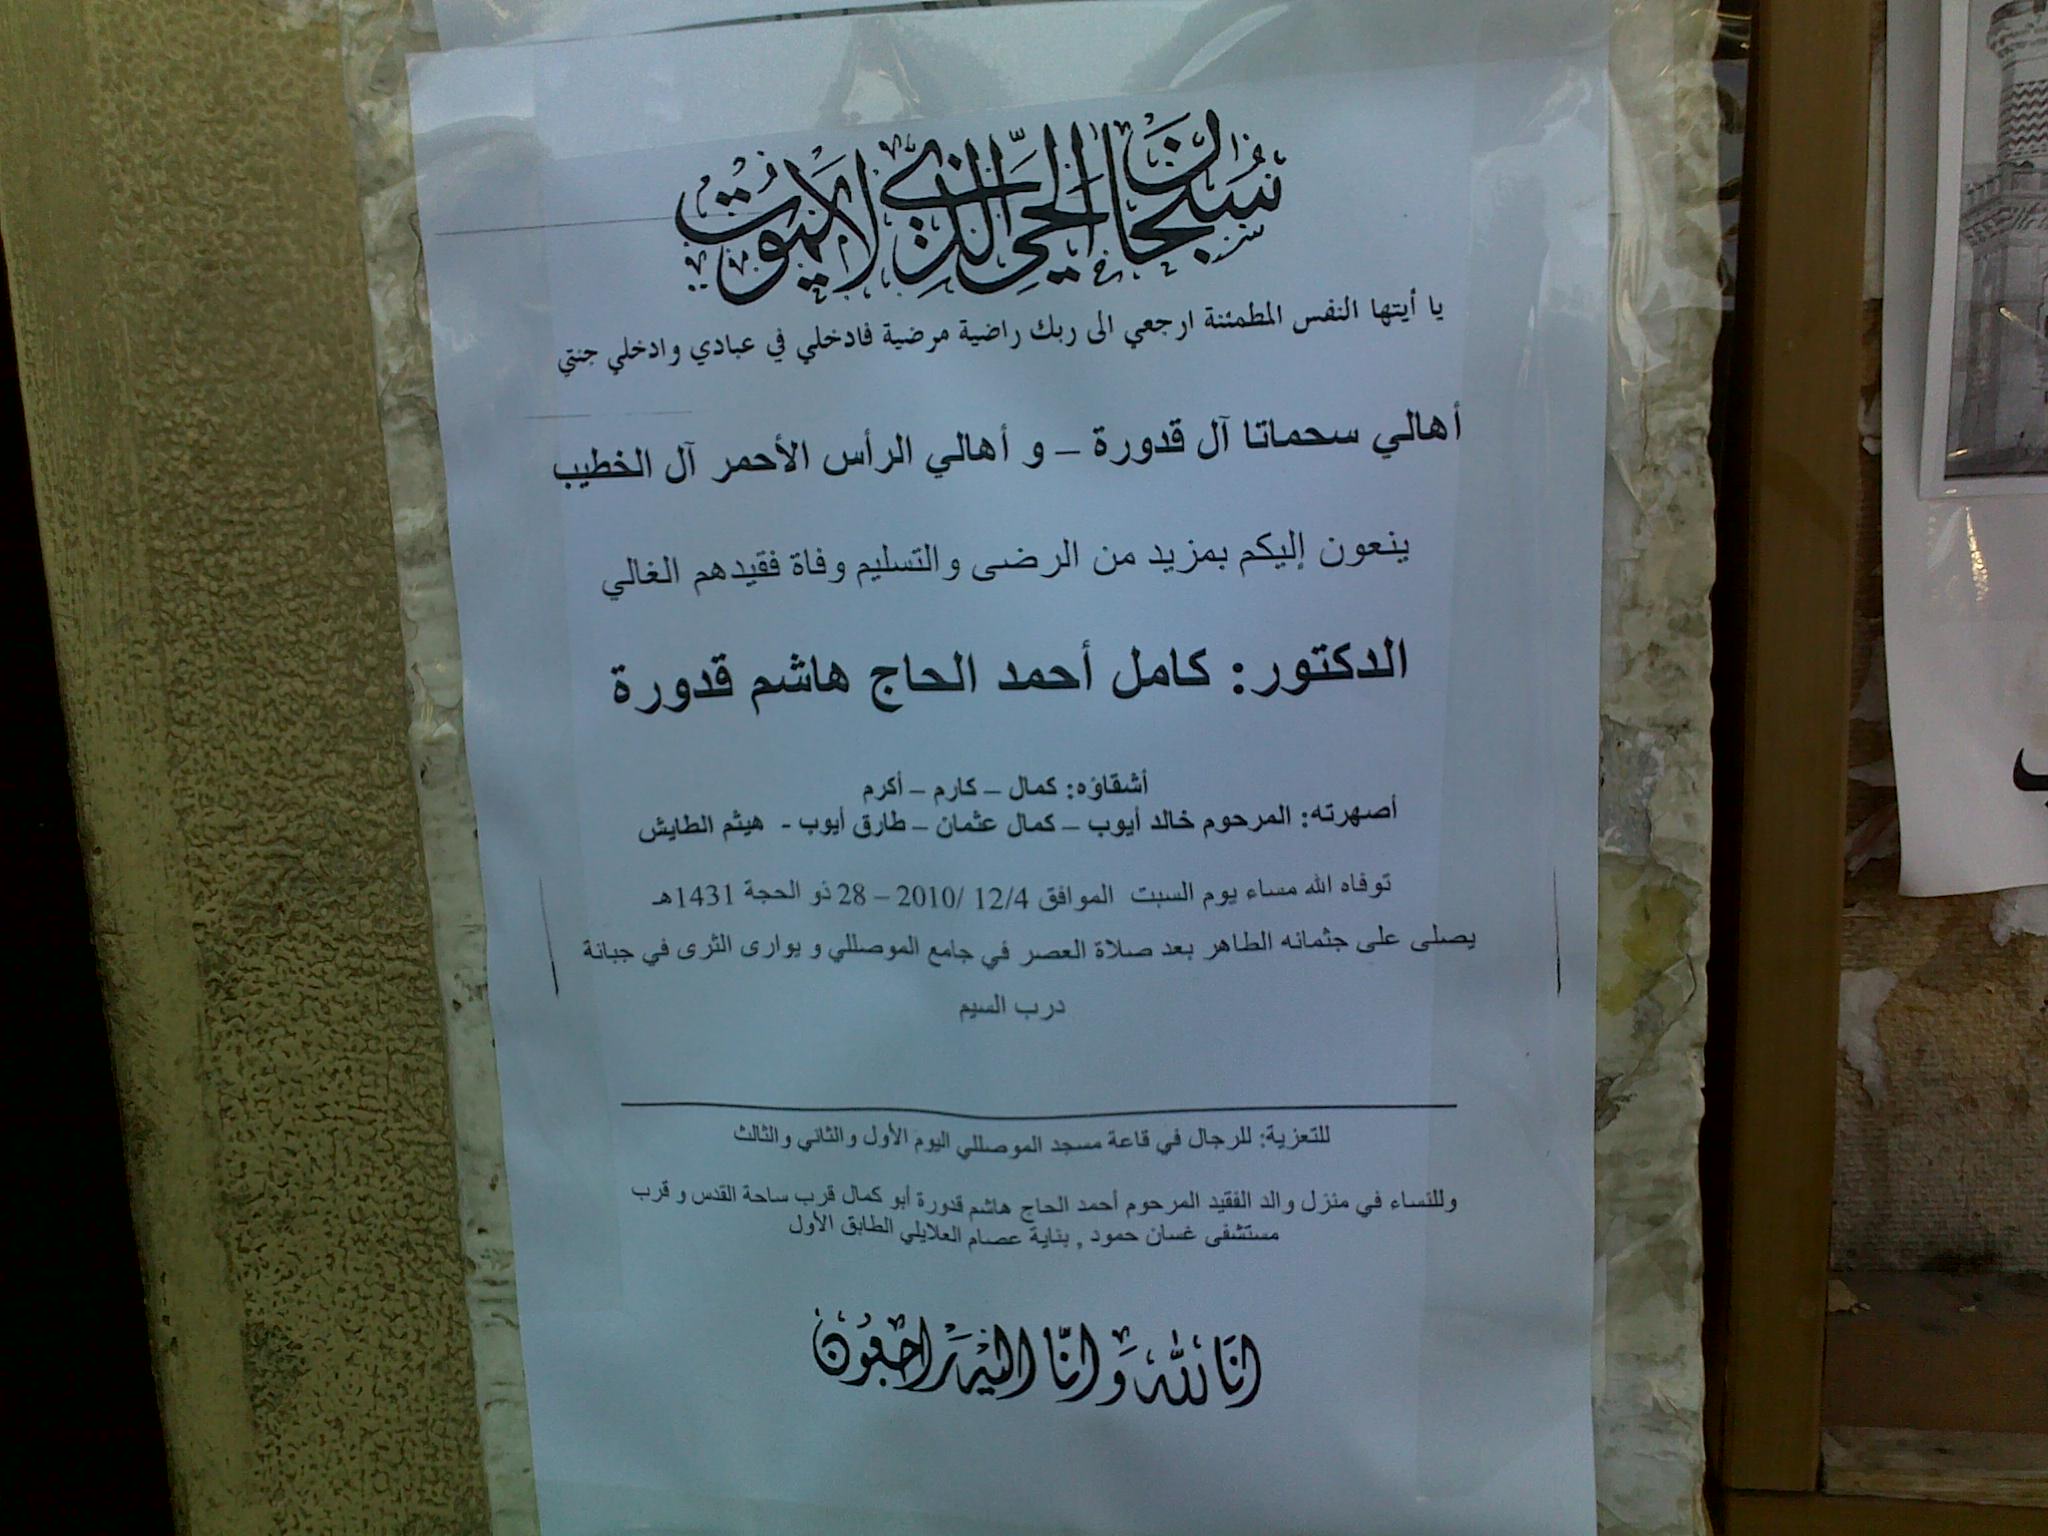 سبحان الحي الذي لا يموت
يا أيتها النفس المطمئنة ارجعي الى ربك راضية مرضية فادخلي في عبادي وادخلي جنتي
أهالي سحماتا آل قدورة – و أهالي الرأس الأحمر آل الخطيب
ينعون إليكم بمزيد من الرضى والتسليم وفاة فقيدهم الغالي
الدكتور: كامل أحمد الحاج هاشم قدورة
أشقاؤه: كمال – كارم – أكرم
أصهرته: المرحوم خالد أيوب – كمال عثمان – طارق أيوب - هيثم الطايش
توفاه الله مساء يوم السبت الموافق 12/4 /2010 – 28 ذو الحجة 1431هـ
يصلى على جثمانه الطاهر بعد صلاة العصر في جامع الموصللي و يوارى الثرى في جبانة
درب السيم
للتعزية: للرجال في قاعة مسجد الموصللي اليوم الأول والثاني والثالث
وللنساء في منزل والد الفقيد المرحوم أحمد الحاج هاشم قدورة أبو كمال قرب ساحة القدس و قرب
مستشفى غسان حمود , بناية عصام العلايلي الطابق الأول
انا لله وانا اليه راجعون